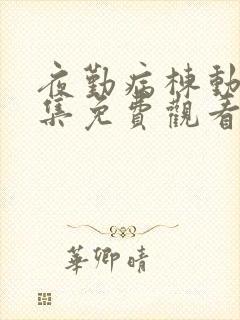 夜勤病棟動
集免費觀看
華卿晴